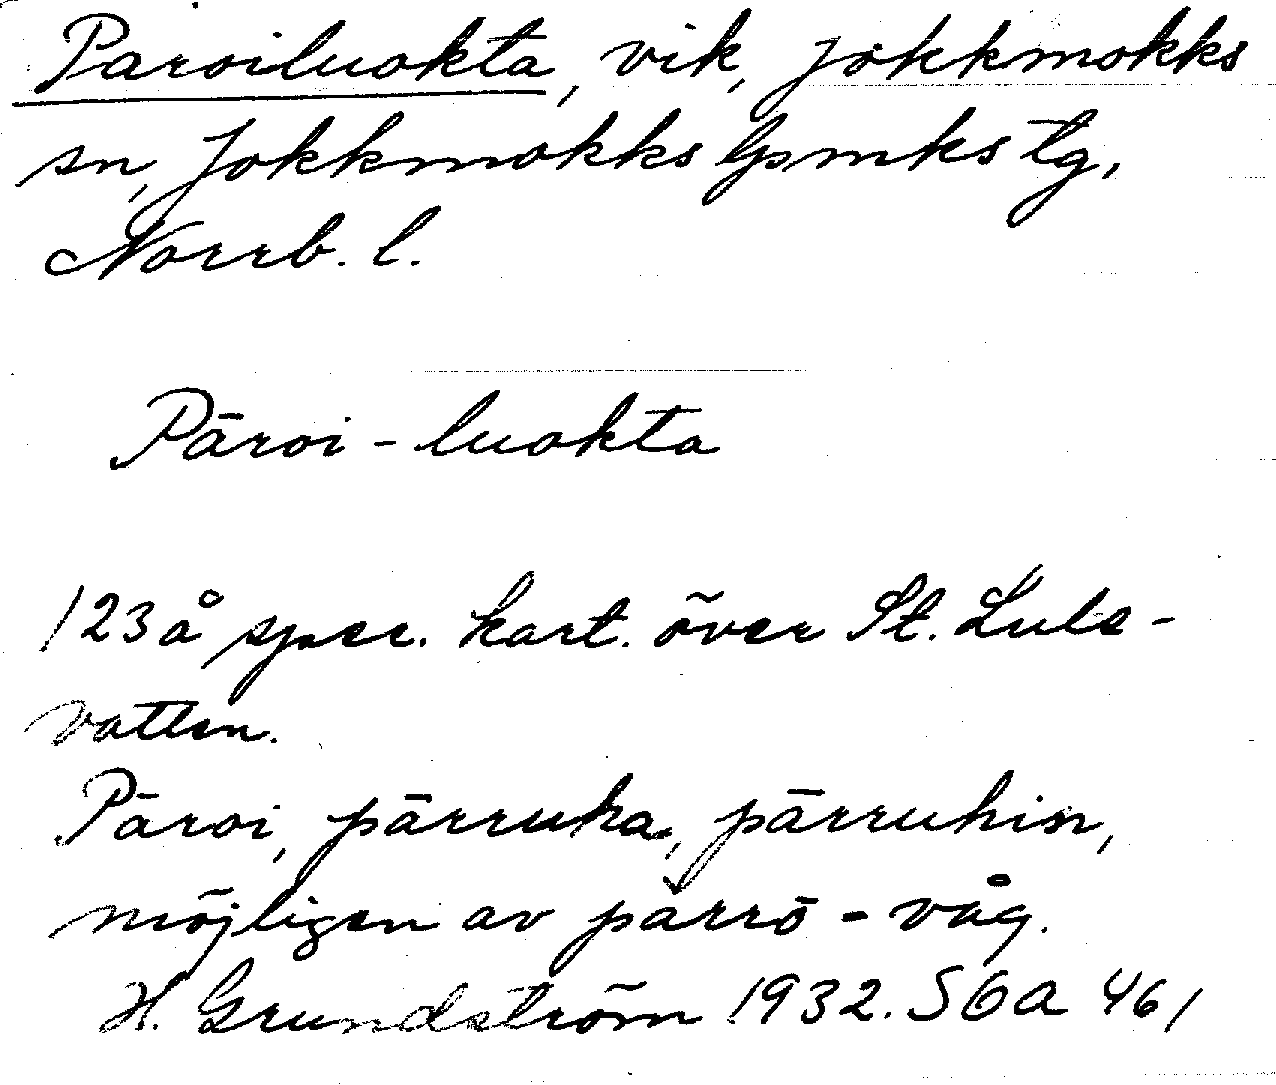 Paroiluokta, vik, Jokkmokks
sn, Jokkmokks lpmks tg,
Norrb. l.
Pāroi-luokta
123 å spec. kart. över St. Lule-
vatten.
Pāroi, pārruka, pārruhin,
möjligen av pǎrrō - våg.
H. Grundström 1932. SOA 461